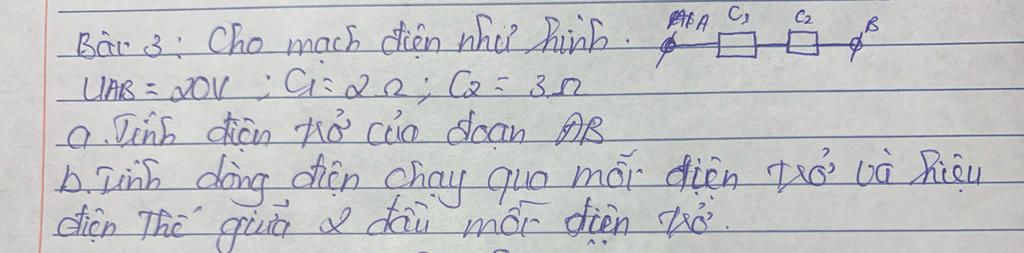 Bài 3: Cho mạch điện như hình. A C1 C2 B
UAB = 20V ; C1 = 2Ω ; C2 = 3Ω
a. Tính điện trở của đoạn AB
b. Tính dòng điện chạy qua mỗi điện trở và hiệu
điện thế giữa 2 đầu mỗi điện trở.